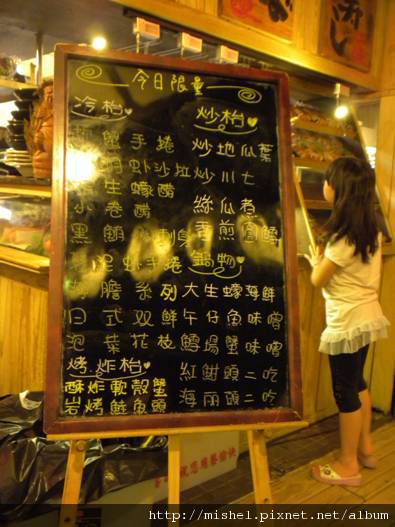 今日限量
冷枱
蟹手捲
蝦沙拉
生蠔醋
卷醋
黑鯛刺身
手捲
膽系列
旧式双鮮
泡菜花枝
烤.炸枱
酥炸軟殼蟹
岩烤鮭魚頭
炒枱
炒地瓜葉
炒川七
絲瓜煮
香煎圓鱈
鍋物
大生蠔海鮮
午仔魚味噌
鱈場蟹味噌
紅魽頭二吃
海兩頭二吃
祝您用餐愉快
http://mishel.pixnet.net/album